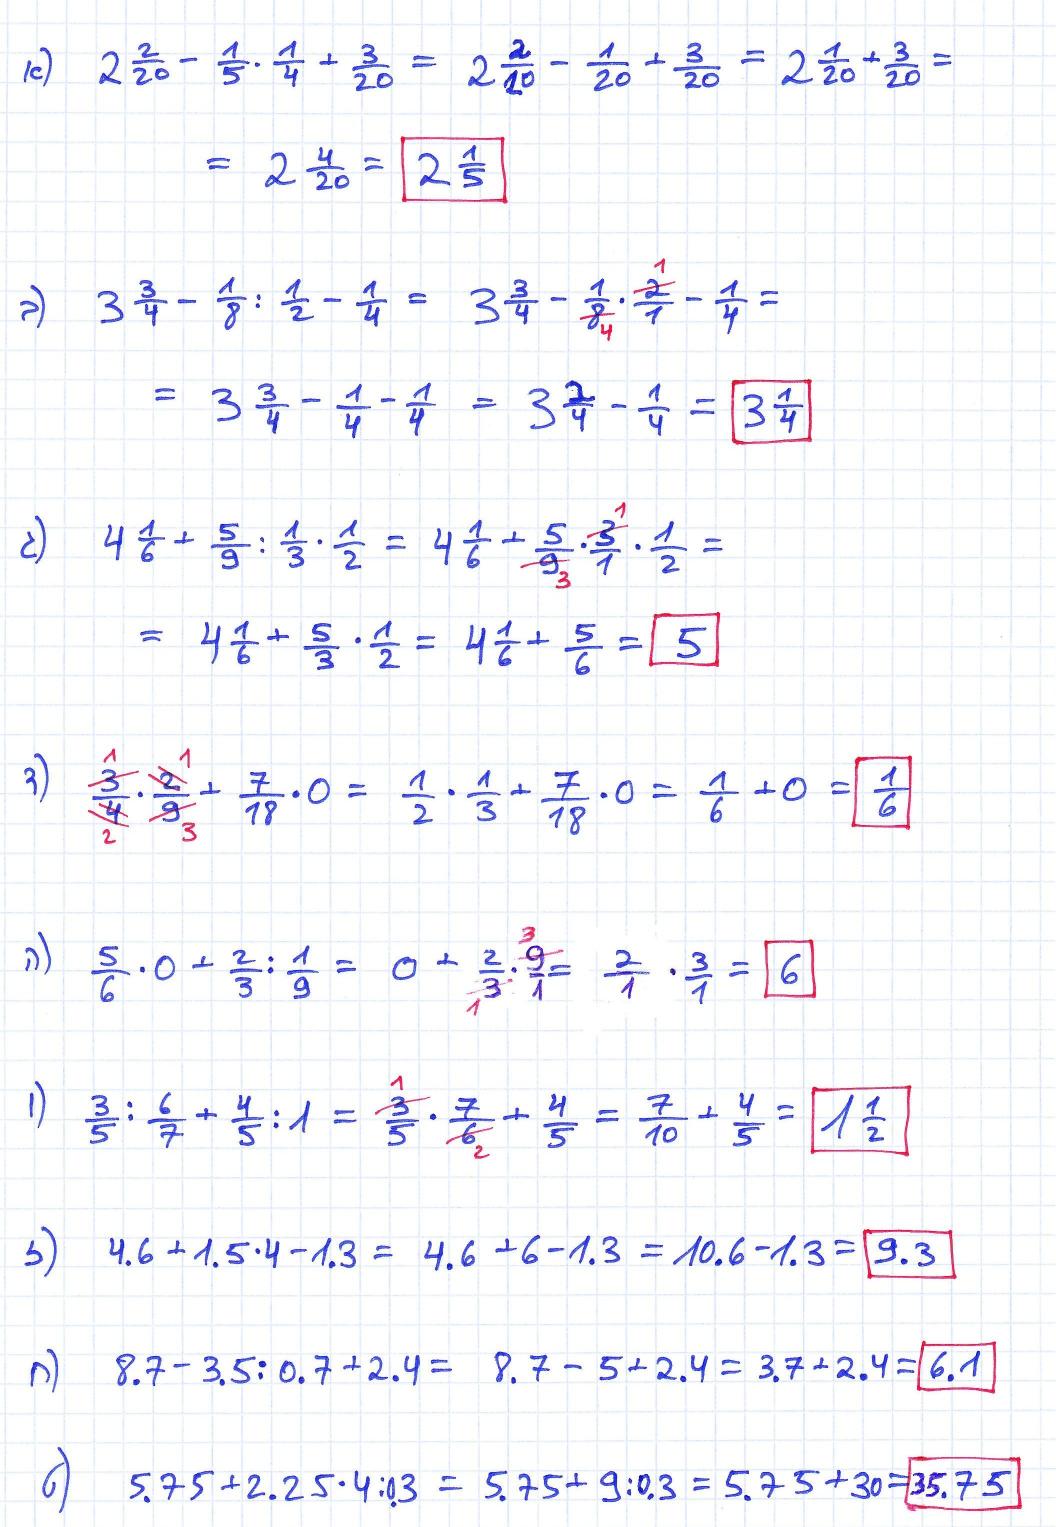 א) 2 2/20 - 1/5 · 1/4 + 3/20 = 2 2/20 - 1/20 + 3/20 = 2 1/20 + 3/20 =
= 2 4/20 = 2 1/5
1
ב) 3 3/4 - 1/8 : 1/2 - 1/4 = 3 3/4 - 1/8 · 2/1 - 1/4 =
4
= 3 3/4 - 1/4 - 1/4 = 3 2/4 - 1/4 = 3 1/4
1
ג) 4 1/6 + 5/9 : 1/3 · 1/2 = 4 1/6 + 5/9 · 3/1 · 1/2 =
3
= 4 1/6 + 5/3 · 1/2 = 4 1/6 + 5/6 = 5
1 1
ד) 3/4 · 2/9 + 7/18 · 0 = 1/2 · 1/3 + 7/18 · 0 = 1/6 + 0 = 1/6
2 3
3
ה) 5/6 · 0 + 2/3 : 1/9 = 0 + 2/3 · 9/1 = 2/1 · 3/1 = 6
1
1
ו) 3/5 : 6/7 + 4/5 : 1 = 3/5 · 7/6 + 4/5 = 7/10 + 4/5 = 1 1/2
2
ז) 4.6 + 1.5 · 4 - 1.3 = 4.6 + 6 - 1.3 = 10.6 - 1.3 = 9.3
ח) 8.7 - 3.5 : 0.7 + 2.4 = 8.7 - 5 + 2.4 = 3.7 + 2.4 = 6.1
ט) 5.75 + 2.25 · 4 : 0.3 = 5.75 + 9 : 0.3 = 5.75 + 30 = 35.75